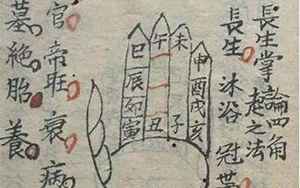 長生掌論四角起之法
長生 沐浴 冠
申酉戌亥
未
子
午
丑
巳辰卯寅
官 帝旺 衰 病
墓 絶 胎 養